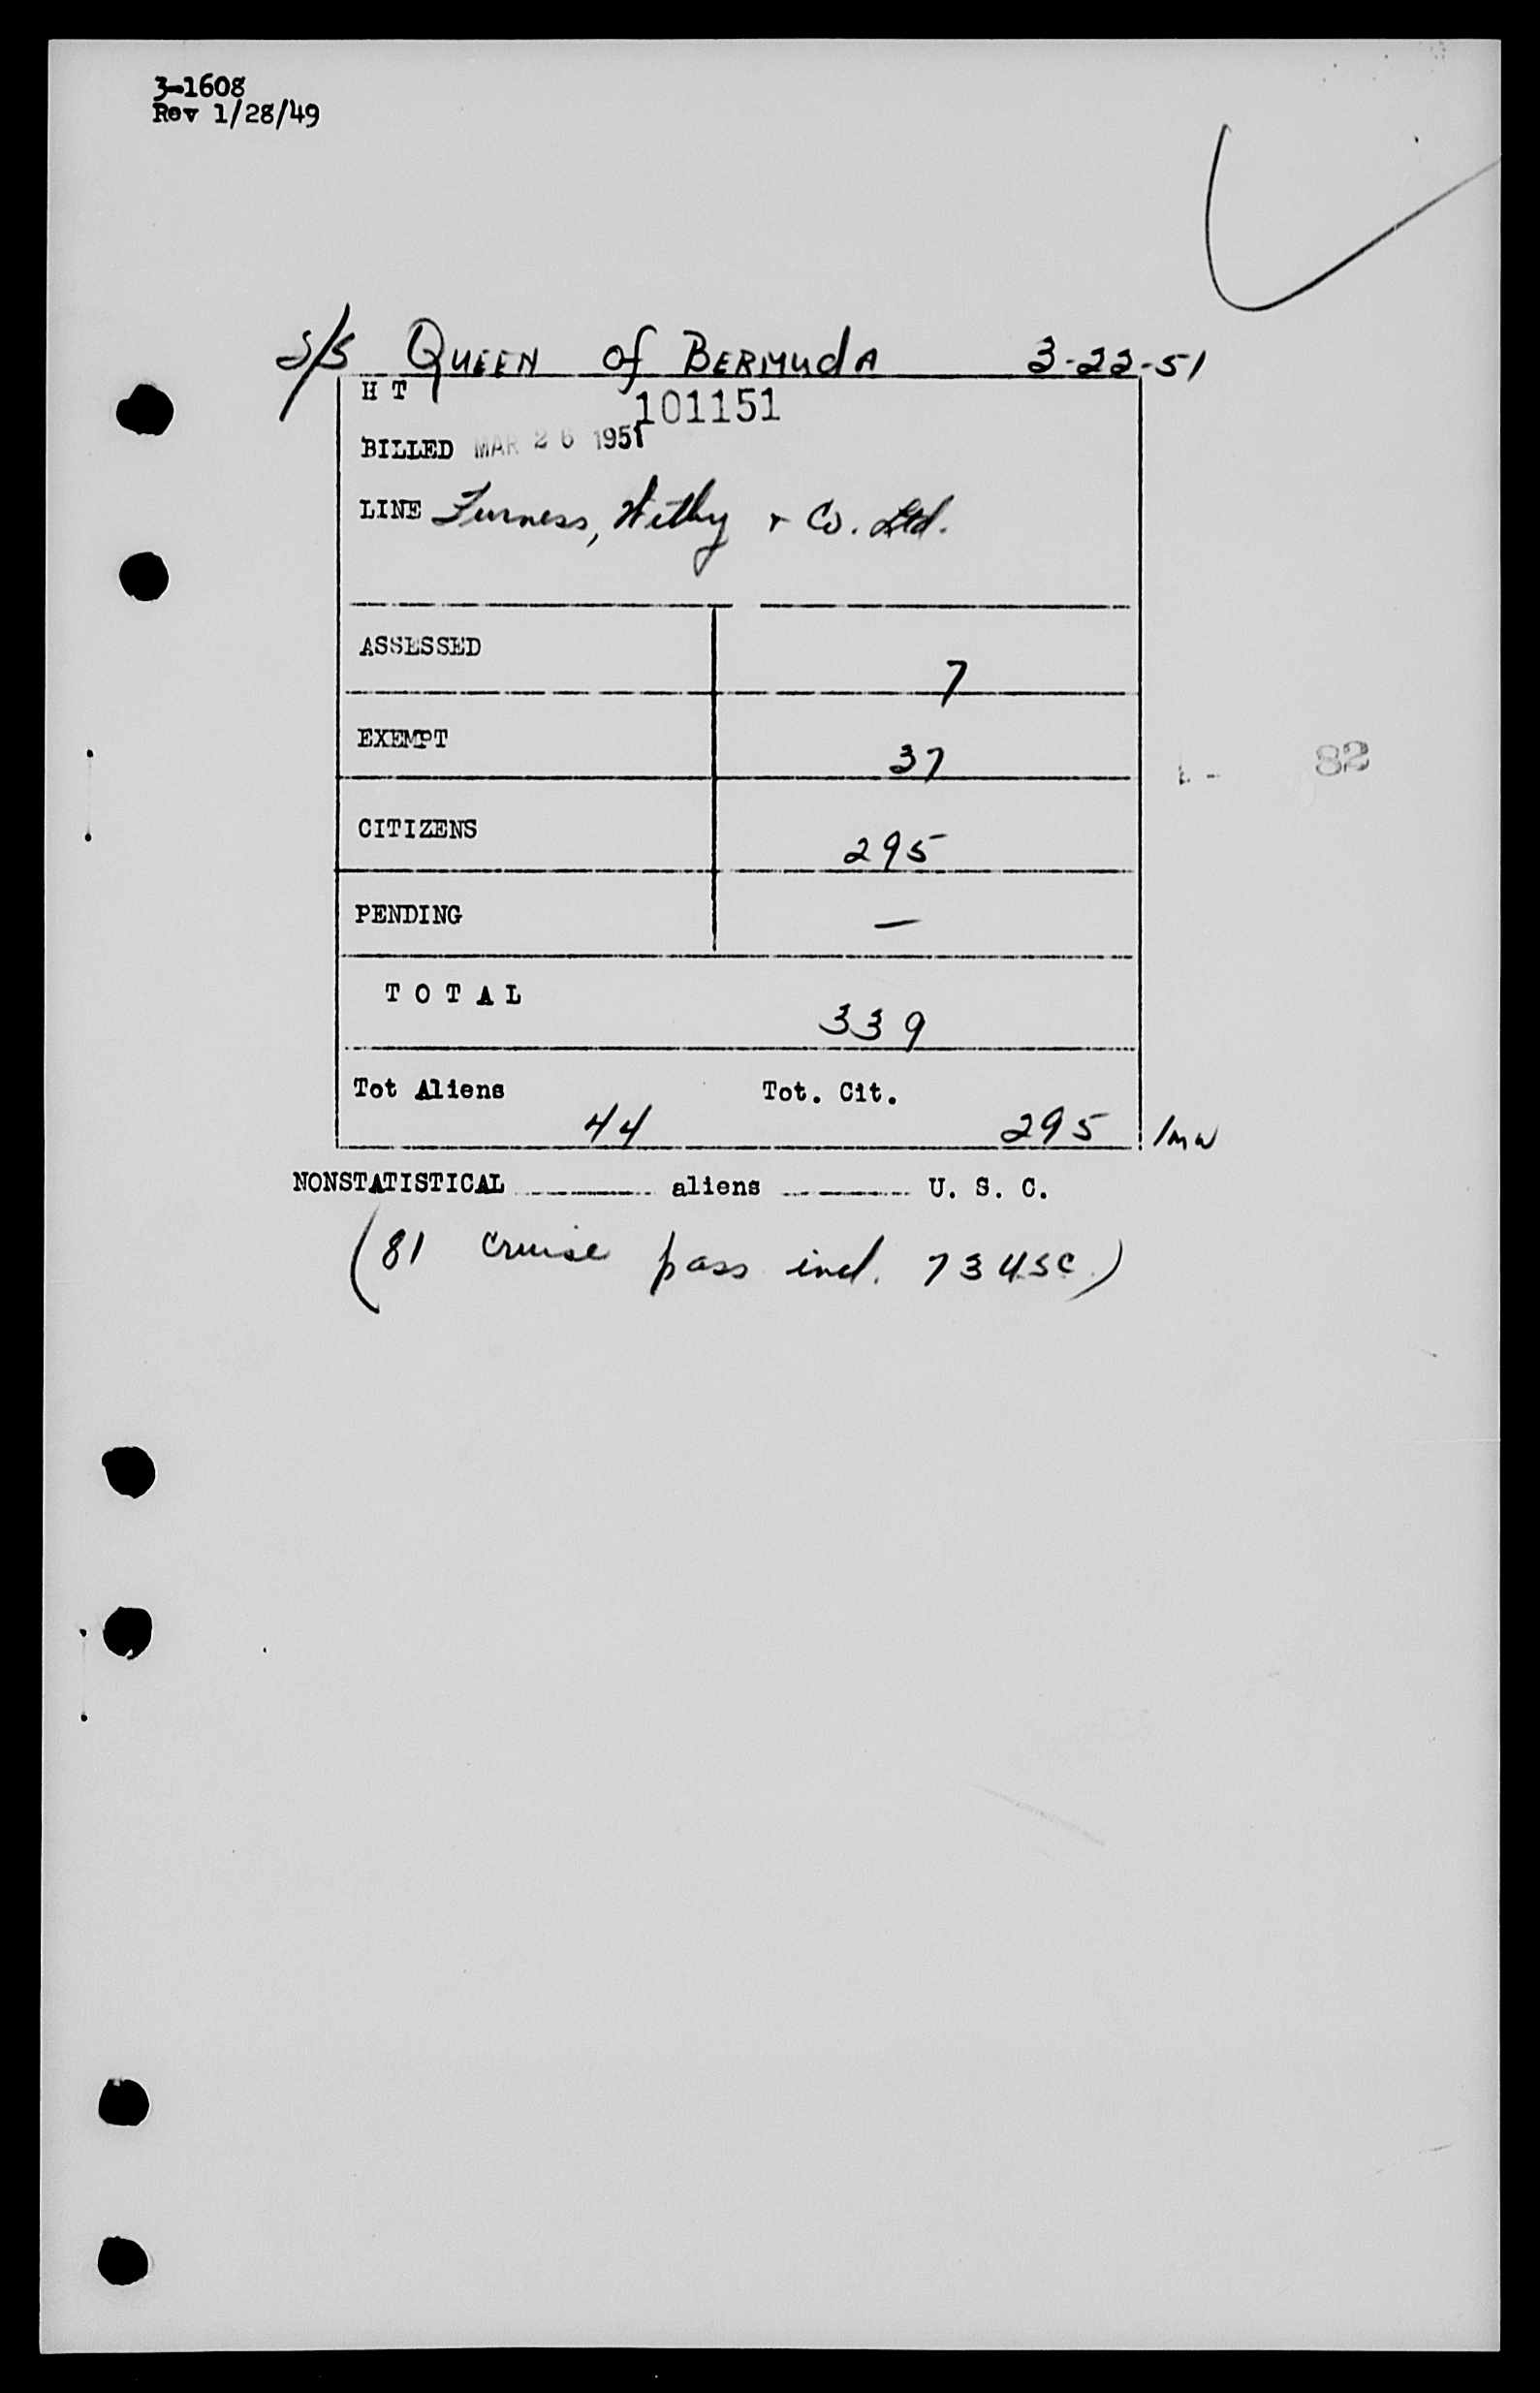 3-1608
Rev 1/28/49
S/S QUEEN of BERMUDA 3-22-51
H T 101151
BILLED MAR 26 1951
LINE Furness, Withy + Co. Ltd.
ASSESSED 7
EXEMPT 37
82
CITIZENS 295
PENDING —
TOTAL 339
Tot Aliens 44 Tot. Cit. 295
NONSTATISTICAL aliens U. S. C.
(81 cruise pass incl. 73 USC)